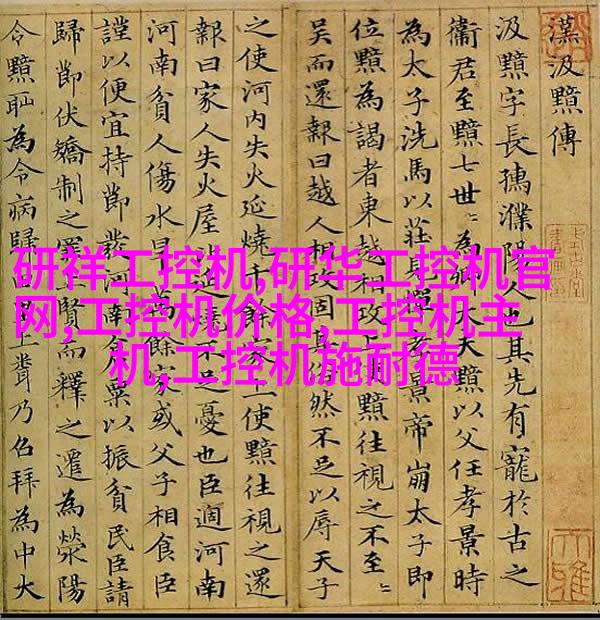 漢汲黯傳
汲黯字長孺濮陽人也其先有寵於古之
衛君至黯七世〻為卿大夫黯以父任孝景時
為太子洗馬以莊見憚孝景帝崩太子即
位黯為謁者東越相攻上使黯往視之不至〻
吳而還報曰越人相攻固其俗然不足以辱天子
之使河內失火延燒千餘家上使黯往視之還
報曰家人失火屋比延燒不足憂也臣過河南
河南貧人傷水旱萬餘家或父子相食臣
謹以便宜持節發河南倉粟以振貧民臣請
歸節伏矯制之罪上賢而釋之遷為滎陽
令黯恥為令病歸田里上聞乃召拜為中大
研祥工控机,研华工控机官
网,工控机价格,工控机主
机,工控机施耐德